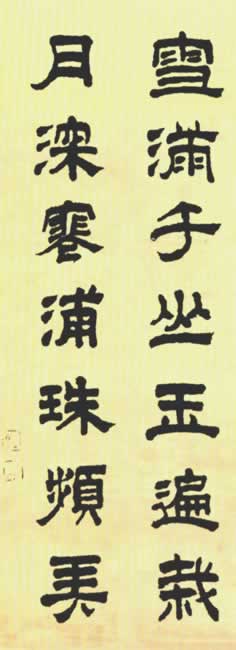 雪滿千山玉遍栽
月深寒浦珠頻弄